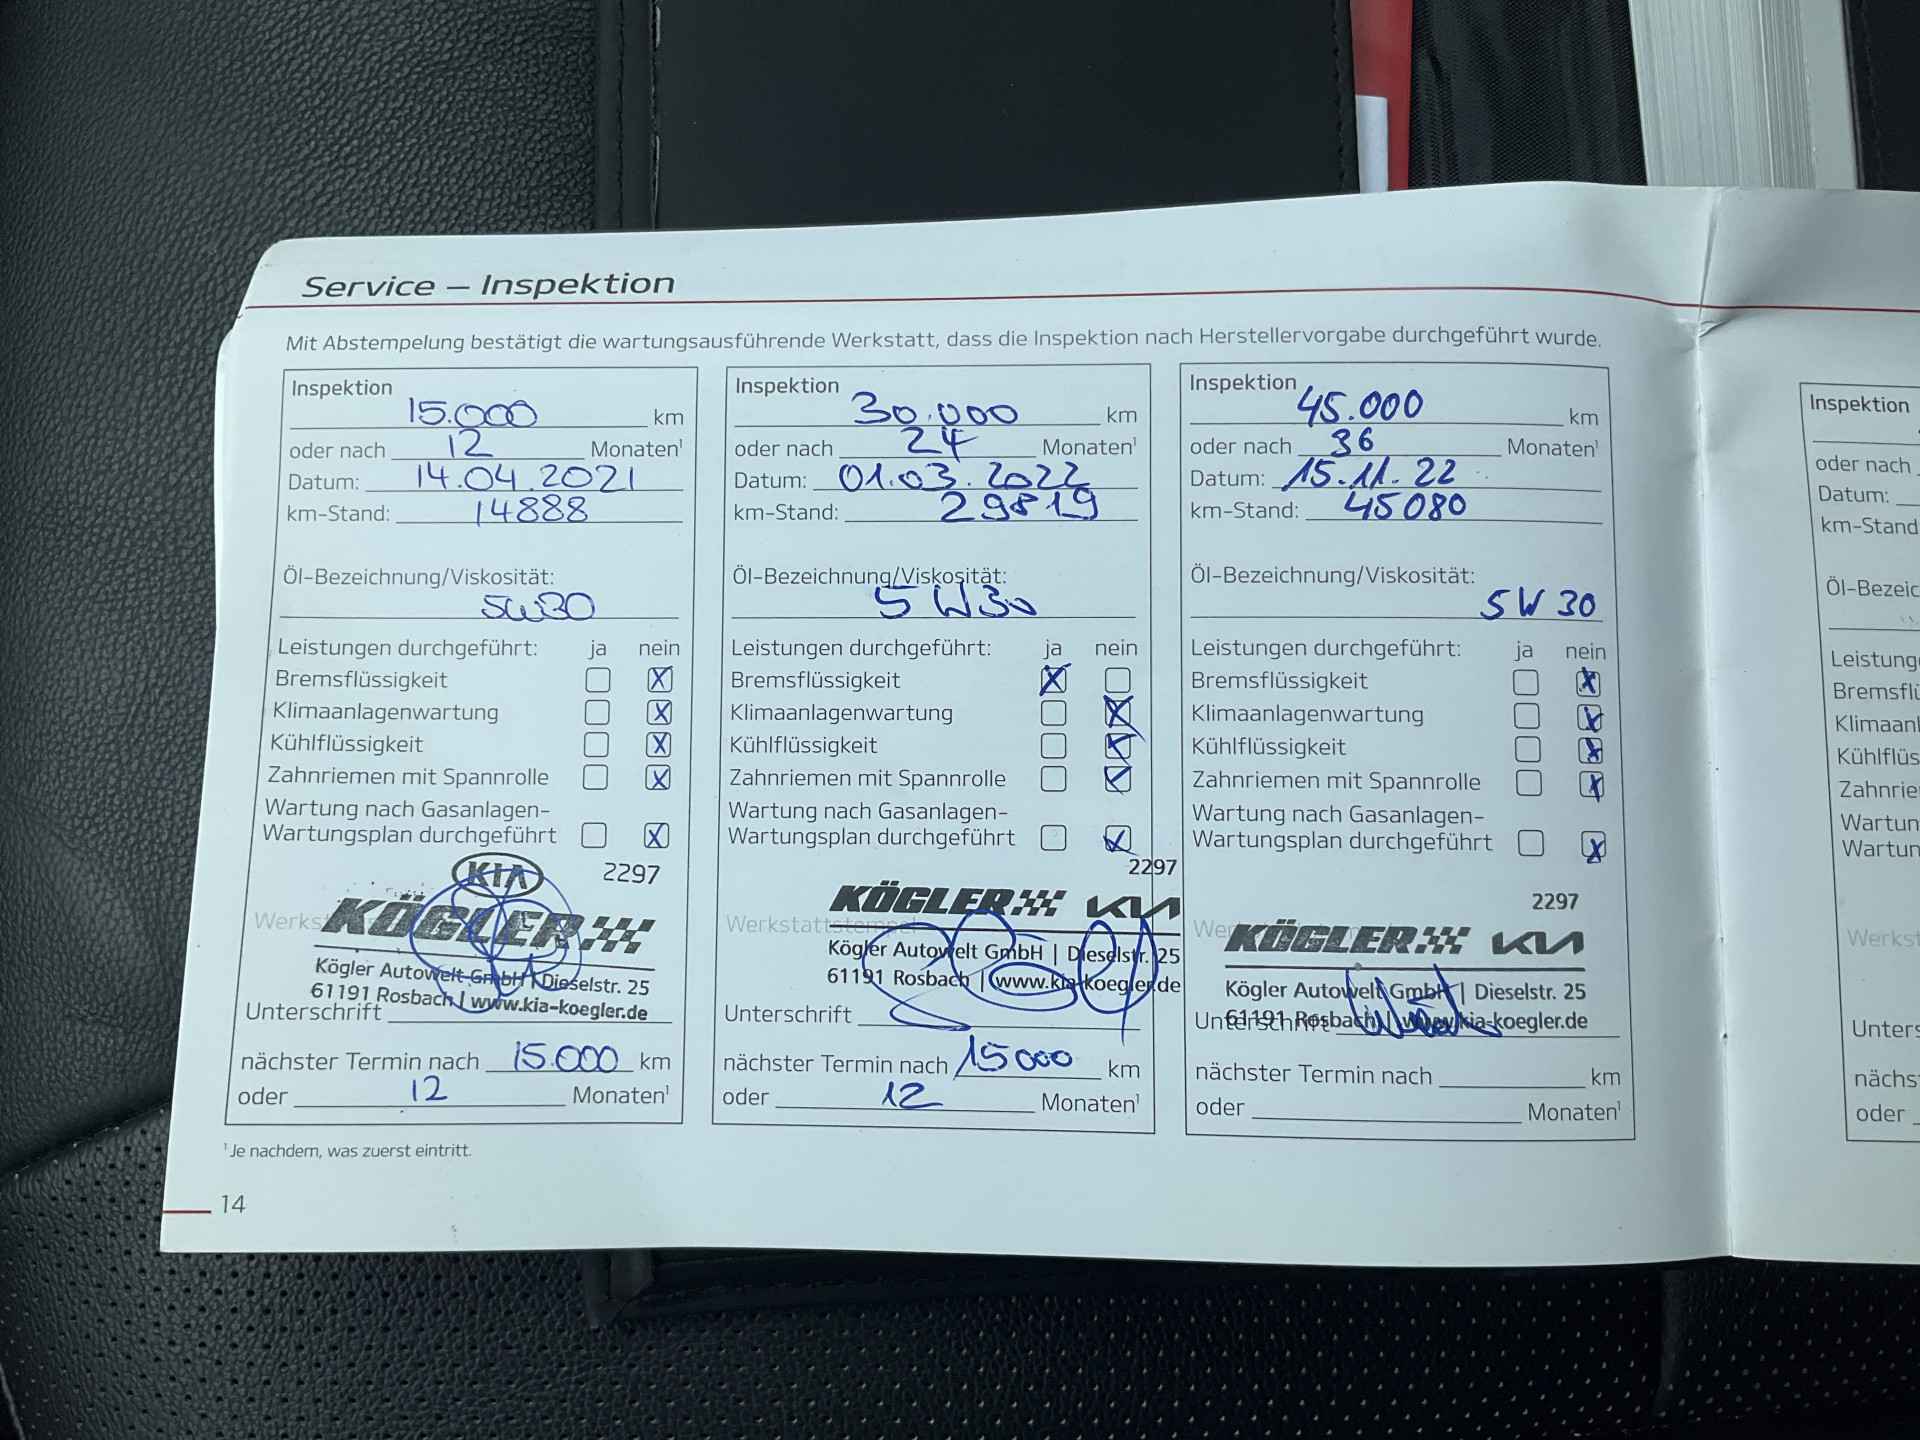 Service – Inspektion
Mit Abstempelung bestätigt die wartungsausführende Werkstatt, dass die Inspektion nach Herstellervorgabe durchgeführt wurde.
Inspektion
15.000 km
oder nach 12 Monaten¹
Datum: 14.04.2021
km-Stand: 14888
Öl-Bezeichnung/Viskosität:
5W30
Leistungen durchgeführt: ja nein
Bremsflüssigkeit X
Klimaanlagenwartung X
Kühlflüssigkeit X
Zahnriemen mit Spannrolle X
Wartung nach Gasanlagen-
Wartungsplan durchgeführt X
KIA 2297
KÖGLER
Kögler Autowelt GmbH | Dieselstr. 25
61191 Rosbach | www.kia-koegler.de
Unterschrift
nächster Termin nach 15.000 km
oder 12 Monaten¹
Inspektion
30.000 km
oder nach 24 Monaten¹
Datum: 01.03.2022
km-Stand: 29819
Öl-Bezeichnung/Viskosität:
5W30
Leistungen durchgeführt: ja nein
Bremsflüssigkeit X
Klimaanlagenwartung X
Kühlflüssigkeit X
Zahnriemen mit Spannrolle X
Wartung nach Gasanlagen-
Wartungsplan durchgeführt X
2297
KÖGLER KIA
Werkstattstempel
Kögler Autowelt GmbH | Dieselstr. 25
61191 Rosbach | www.kia-koegler.de
Unterschrift
nächster Termin nach 15000 km
oder 12 Monaten¹
Inspektion
45.000 km
oder nach 36 Monaten¹
Datum: 15.11.22
km-Stand: 45080
Öl-Bezeichnung/Viskosität:
5W30
Leistungen durchgeführt: ja nein
Bremsflüssigkeit x
Klimaanlagenwartung x
Kühlflüssigkeit x
Zahnriemen mit Spannrolle x
Wartung nach Gasanlagen-
Wartungsplan durchgeführt x
2297
KÖGLER KIA
Kögler Autowelt GmbH | Dieselstr. 25
61191 Rosbach | www.kia-koegler.de
Unterschrift
nächster Termin nach km
oder Monaten¹
¹ Je nachdem, was zuerst eintritt.
14
Inspektion
oder nach
Datum:
km-Stand
Öl-Bezeic
Leistung
Bremsflü
Klimaanl
Kühlflüs
Zahnrie
Wartun
Wartun
Werkst
Unters
nächst
oder